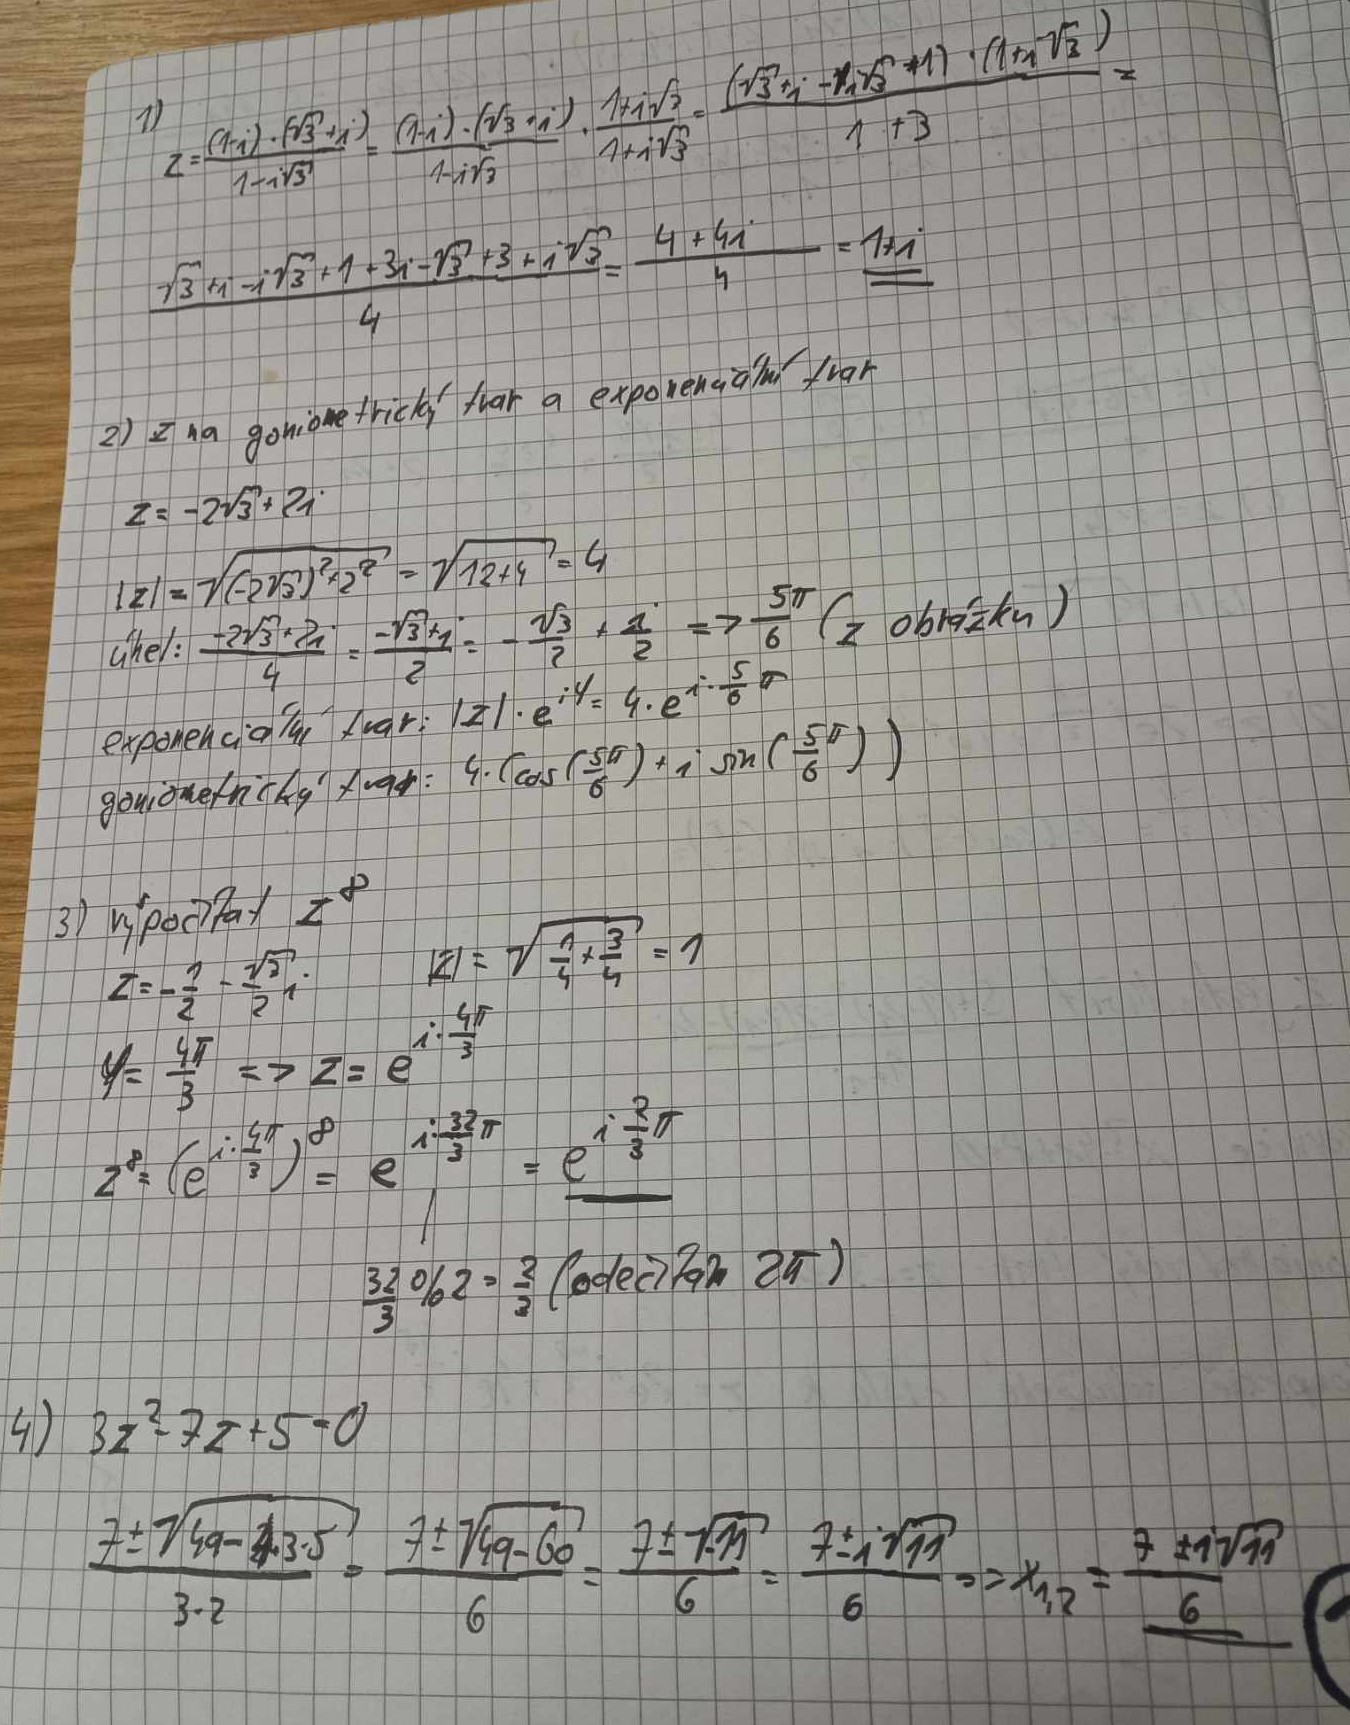 1)
z = \frac{(1-i)·(√3+i)}{1-i√3} = \frac{(1-i)·(√3+i)}{1-i√3} · \frac{1+i√3}{1+i√3} = \frac{(√3+i-i√3+1)·(1+i√3)}{1+3} =
\frac{√3+i-i√3+1+3i-√3+3+i√3}{4} = \frac{4+4i}{4} = 1+i
2) z na goniometrický tvar a exponenciální tvar
z = -2√3+2i
|z| = √((-2√3)²+2²) = √(12+4) = 4
úhel: \frac{-2√3+2i}{4} = \frac{-√3+i}{2} = -\frac{√3}{2} + \frac{i}{2} => \frac{5π}{6} (z obrázku)
exponenciální tvar: |z|·e^{iφ} = 4·e^{i·\frac{5}{6}π}
goniometrický tvar: 4·(cos(\frac{5π}{6}) + i sin(\frac{5}{6}π))
3) vypočítat z⁸
z = -\frac{1}{2} - \frac{√3}{2}i |z| = √(\frac{1}{4}+\frac{3}{4}) = 1
φ = \frac{4π}{3} => z = e^{i·\frac{4π}{3}}
z⁸ = (e^{i·\frac{4π}{3}})⁸ = e^{i·\frac{32}{3}π} = e^{i\frac{2}{3}π}
\frac{32}{3} % 2 = \frac{2}{3} (odečítám 2π)
4) 3z²-7z+5=0
\frac{7±√(49-4·3·5)}{3·2} = \frac{7±√(49-60)}{6} = \frac{7±√-11}{6} = \frac{7±i√11}{6} => x_{1,2} = \frac{7±i√11}{6}